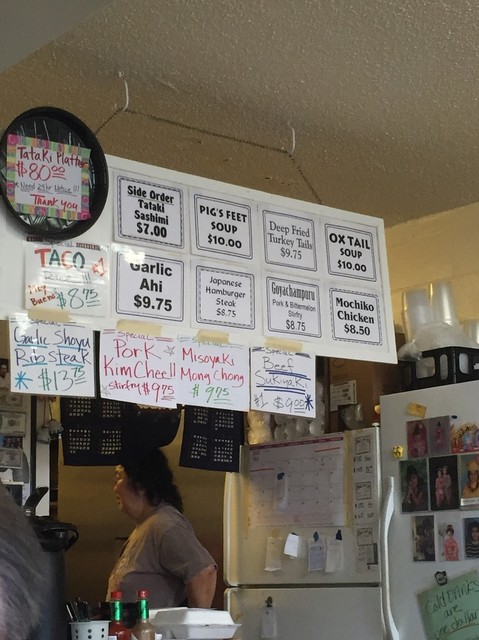 Tataki Platter
$80.00
* Need 24hr Notice!!!
Thank you
Side Order
Tataki
Sashimi
$7.00
PIG'S FEET
SOUP
$10.00
Deep Fried
Turkey Tails
$9.75
OX TAIL
SOUP
$10.00
TACO
Muy
Bueno
$8.75
Garlic
Ahi
$9.75
Japanese
Hamburger
Steak
$8.75
Goyachampuru
Pork & Bittermelon
Stirfry
$8.75
Mochiko
Chicken
$8.50
Special
Garlic Shoyu
Rib Steak
$13.75
Special
Pork
Kim Chee!!
stirfry $9.75
Special
Misoyaki
Mong Chong
$9.75
Special
Beef
Sukiyaki
$9.00
Cold Drinks
are